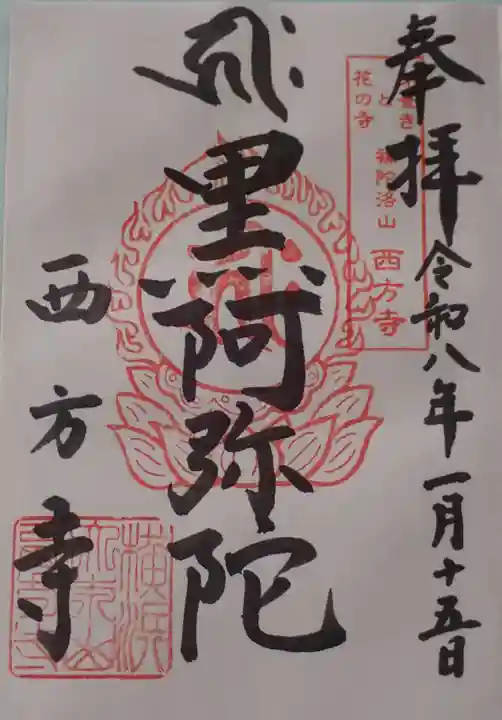 奉拝
令和八年一月十五日
と
花の寺
補陀洛山
西方寺
黒阿弥陀
西方寺
横浜